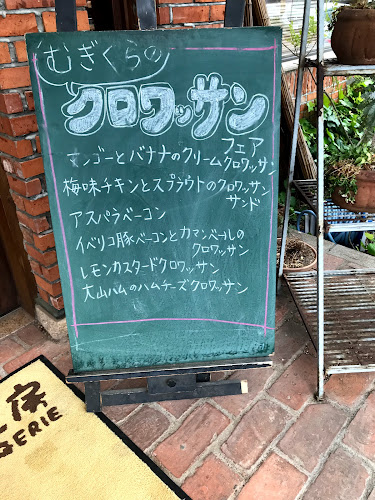 むぎくらの
クロワッサン
フェア
マンゴーとバナナのクリームクロワッサン
梅味チキンとスプラウトのクロワッサン
サンド
アスパラベーコン
イベリコ豚ベーコンとカマンベールの
クロワッサン
レモンカスタードクロワッサン
大山ハムのハムチーズクロワッサン
房
GERIE